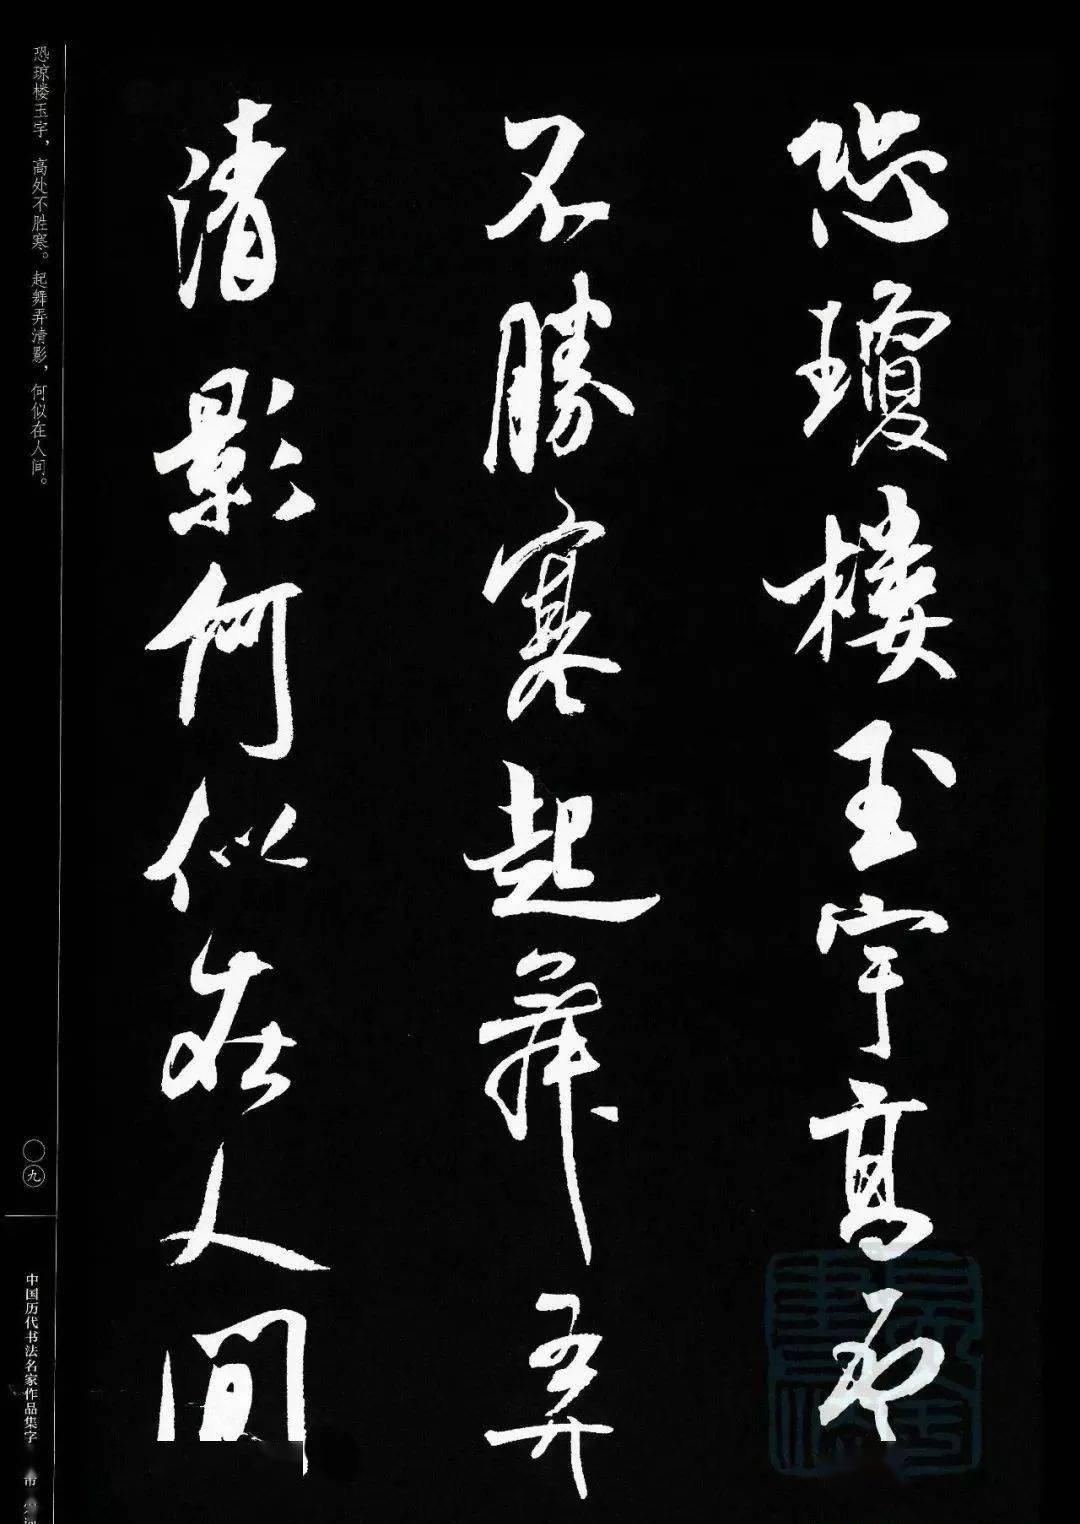 恐瓊樓玉宇高處
不勝寒起舞弄
清影何似在人間
恐琼楼玉宇，高处不胜寒。起舞弄清影，何似在人间。
〇九
中国历代书法名家作品集字